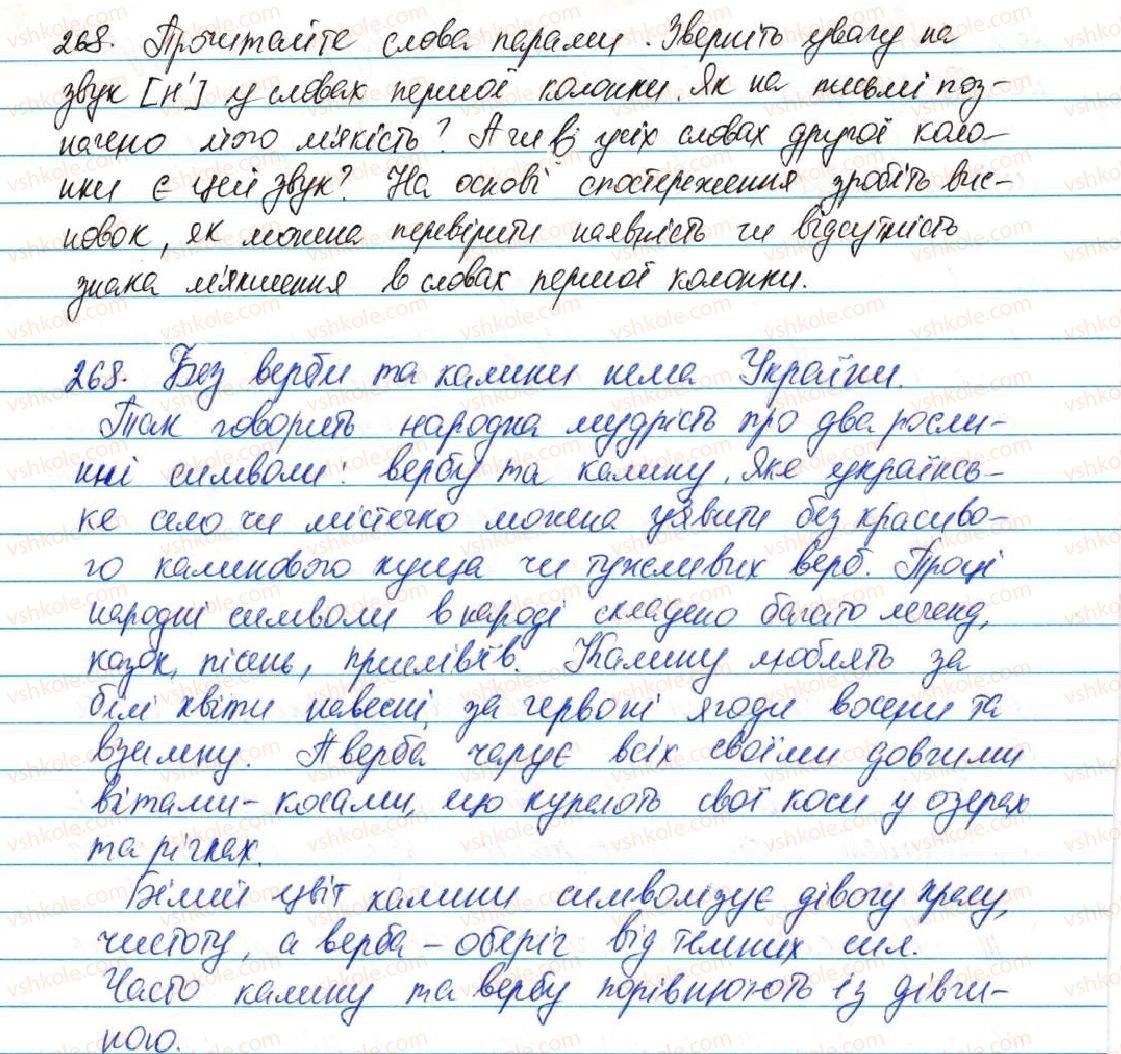 268. Прочитайте слова парами. Зверніть увагу на
звук [н'] у словах першої колонки. Як на письмі поз-
начено його м'якість? А чи в усіх словах другої коло-
нки є цей звук? На основі спостереження зробіть вис-
новок, як можна перевірити наявність чи відсутність
знака м'якшення в словах першої колонки.
268. Без верби та калини нема України.
Так говорить народна мудрість про два росли-
нні символи: вербу та калину. Яке українсь-
ке село чи містечко можна уявити без красиво-
го калинового куща чи тужливих верб. Про ці
народні символи в народі складено багато легенд,
казок, пісень, прислів'їв. Калину люблять за
білі квіти навесні, за червоні ягоди восени та
взимку. А верба чарує всіх своїми довгими
вітами-косами, що купають свої коси у озерах
та річках.
Білий цвіт калини символізує дівочу красу,
чистоту, а верба – оберіг від темних сил.
Часто калину та вербу порівнюють із дівчи-
ною.
vshkole.com